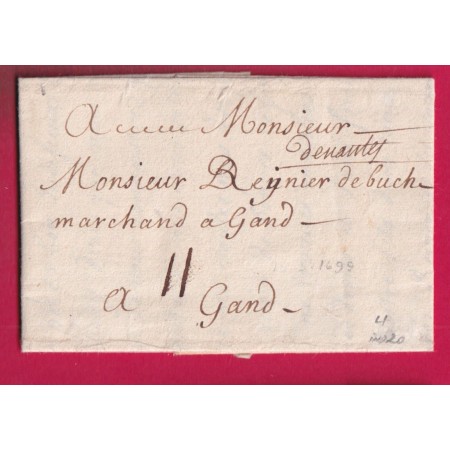 A Monsieur
denantes
Monsieur Reynier de buch
marchand a Gand
11
a Gand
1699
4